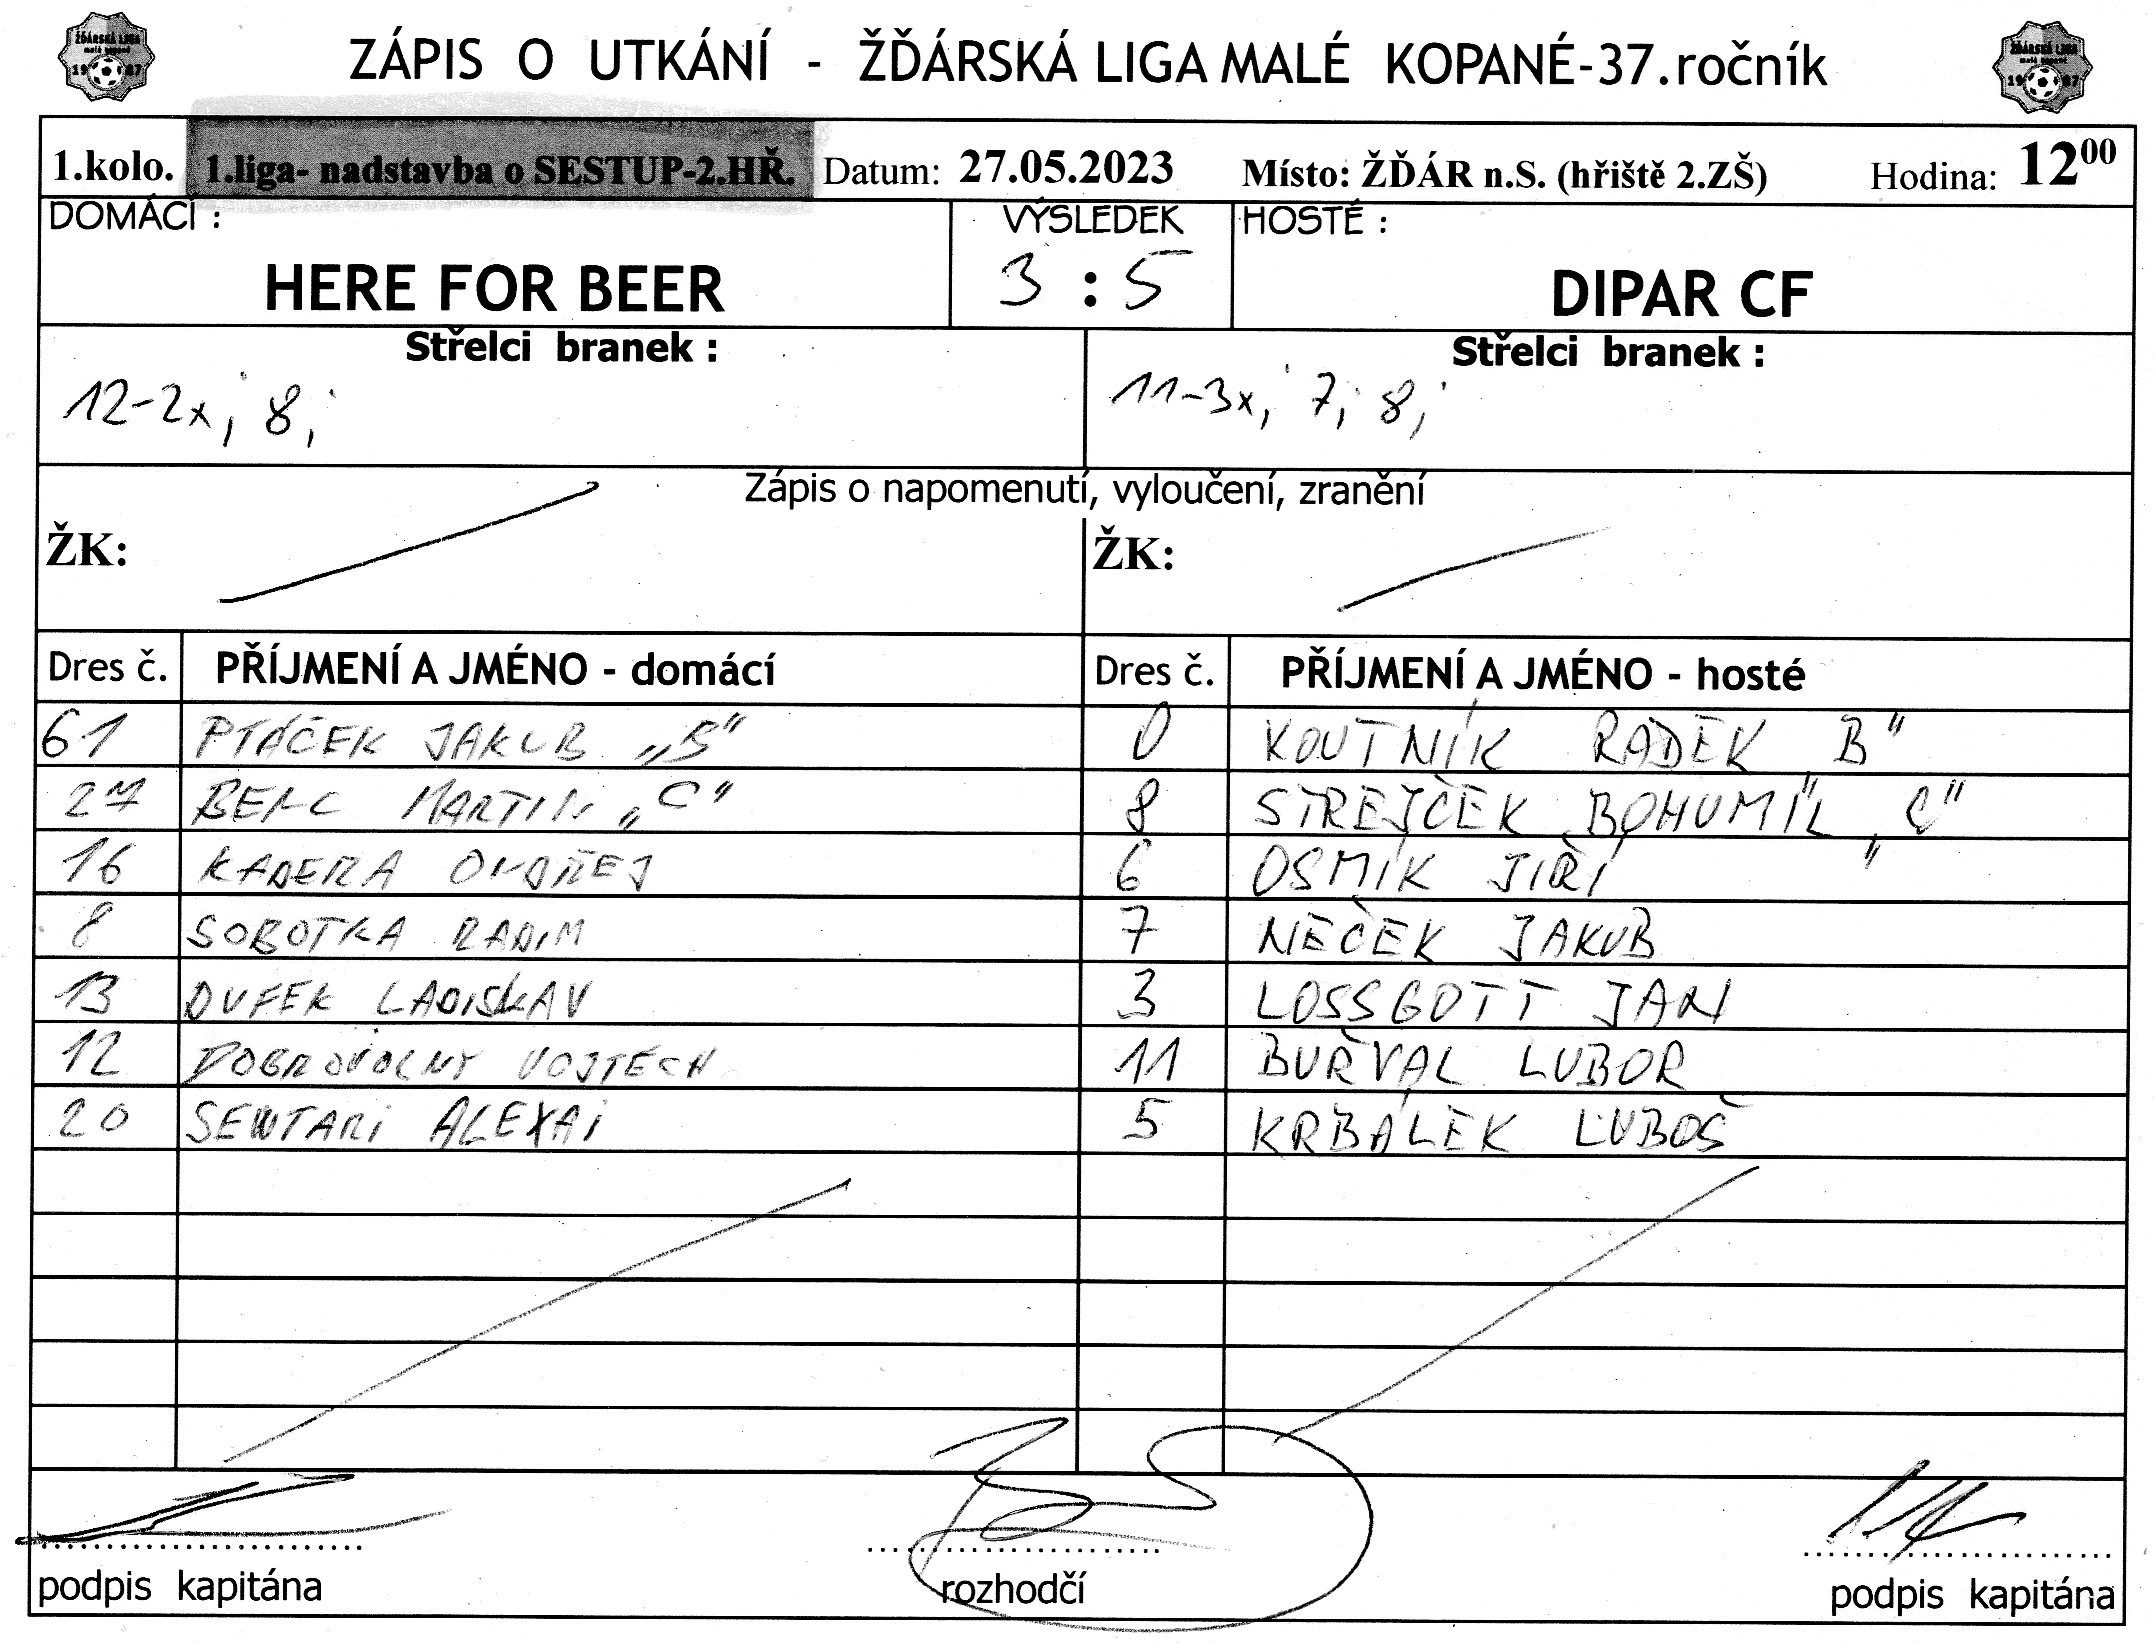 ZÁPIS O UTKÁNÍ - ŽĎÁRSKÁ LIGA MALÉ KOPANÉ-37.ročník
1.kolo. 1.liga- nadstavba o SESTUP-2.HŘ. Datum: 27.05.2023 Místo: ŽĎÁR n.S. (hřiště 2.ZŠ) Hodina: 12⁰⁰
DOMÁCÍ : VÝSLEDEK HOSTÉ :
HERE FOR BEER 3 : 5 DIPAR CF
Střelci branek : Střelci branek :
12-2x; 8; 11-3x; 7; 8;
Zápis o napomenutí, vyloučení, zranění
ŽK: ŽK:
Dres č. PŘÍJMENÍ A JMÉNO - domácí Dres č. PŘÍJMENÍ A JMÉNO - hosté
61 PTÁČEK JAKUB „B" 0 KOUTNÍK RADEK B"
27 MARTIN „C" 8 STREJČEK BOHUMIL „C"
16 KADERA ONDŘEJ 6 OSMÍK JIŘÍ
8 SOBOTKA RADIM 7 NEČEK JAKUB
13 DUFEK LADISLAV 3 LOSSGOTT JAN
12 DOBROVOLNY VOJTECH 11 BUŘVAL LUBOR
20 ALEXAI 5 KRBÁLEK LUBOŠ
podpis kapitána rozhodčí podpis kapitána